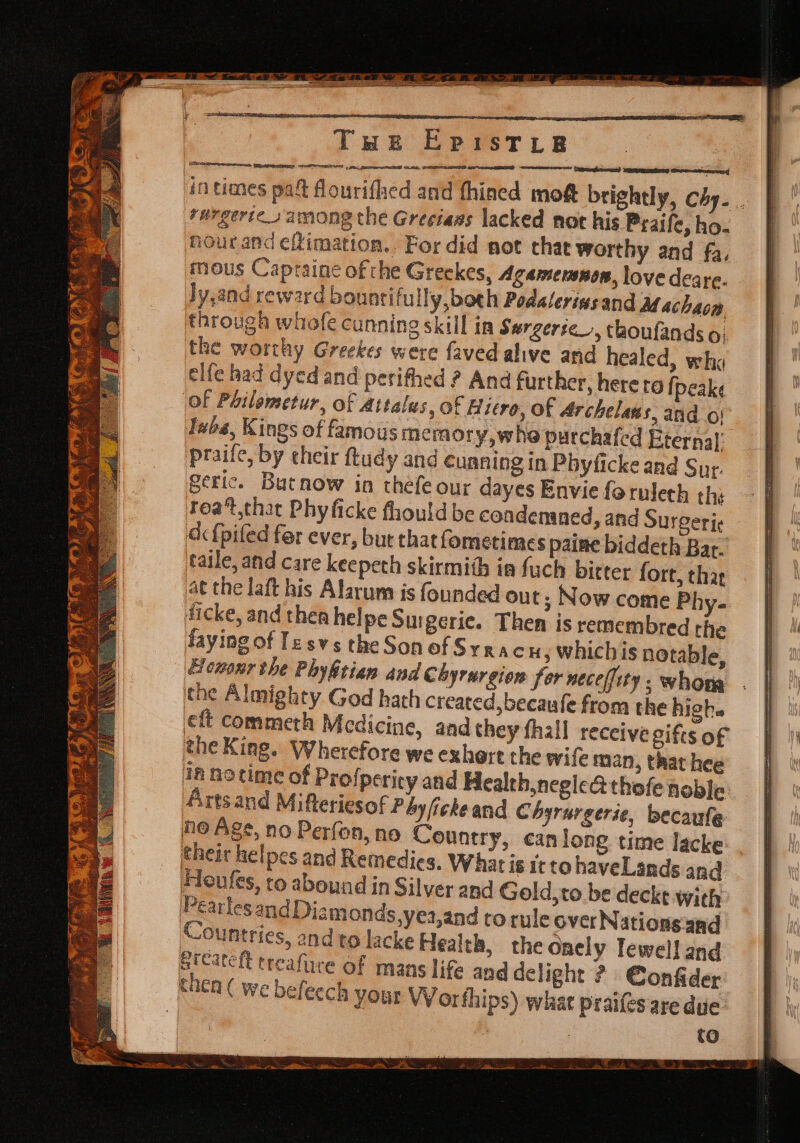 THE EPISTLE
in times paſt flouriſhed and ſhined moſt brightly, Chy-
rurgerie among the Grecians lacked not his Praiſe, ho-
nour and eſtimation. For did not that worthy and fa-
mous Captaine of the Greekes, Agamemnon, love deare-
ly, and reward bountifully, both Podalerius and Machaon
through whoſe cunning skill in Surgerie, thouſands of
the worthy Greekes were ſaved alive and healed, who
elſe had dyed and periſhed ? And further, here to ſpeake
of Philometur, of Attalus, of Hiero, of Archelaus, and of
Iuba, Kings of famous memory, who purchaſed Eternall
praiſe, by their ſtudy and cunning in Phyſicke and Sur-
gerie. But now in theſe our dayes Envie ſo ruleth the
roaſt, that Phyſicke ſhould be condemned, and Surgerie
deſpiſed for ever, but that ſometimes paine biddeth Bat-
taile, and care keepeth skirmith in ſuch bitter ſort, that
at the laſt his Alarum is ſounded out; Now come Phy-
ſicke, and then helpe Surgerie. Then is remembred the
ſaying of IESVS the Son of SYRACH, which is notable,
Honour the Phyſitian and Chyrurgion for neceſſity; whom
the Almighty God hath created, becauſe from the high-
eſt commeth Medicine, and they ſhall receive gifts of
the King. Wherefore we exhort the wiſe man, that hee
in no time of Proſperity and Health, neglect thoſe noble
Arts and Miſteries of Phyſicke and Chyrurgerie, becauſe
no Age, no Perſon, no Country, can long time lacke
their helpes and Remedies. What is it to have Lands and
Houſes, to abound in Silver and Gold, to be deckt with
Pearles and Diamonds, yea, and to rule over Nations and
Countries, and to lacke Health, the onely Iewell and
greateſt treaſure of mans life and delight ? Conſider
then ( we beſeech your Worſhips) what praiſes are due
to